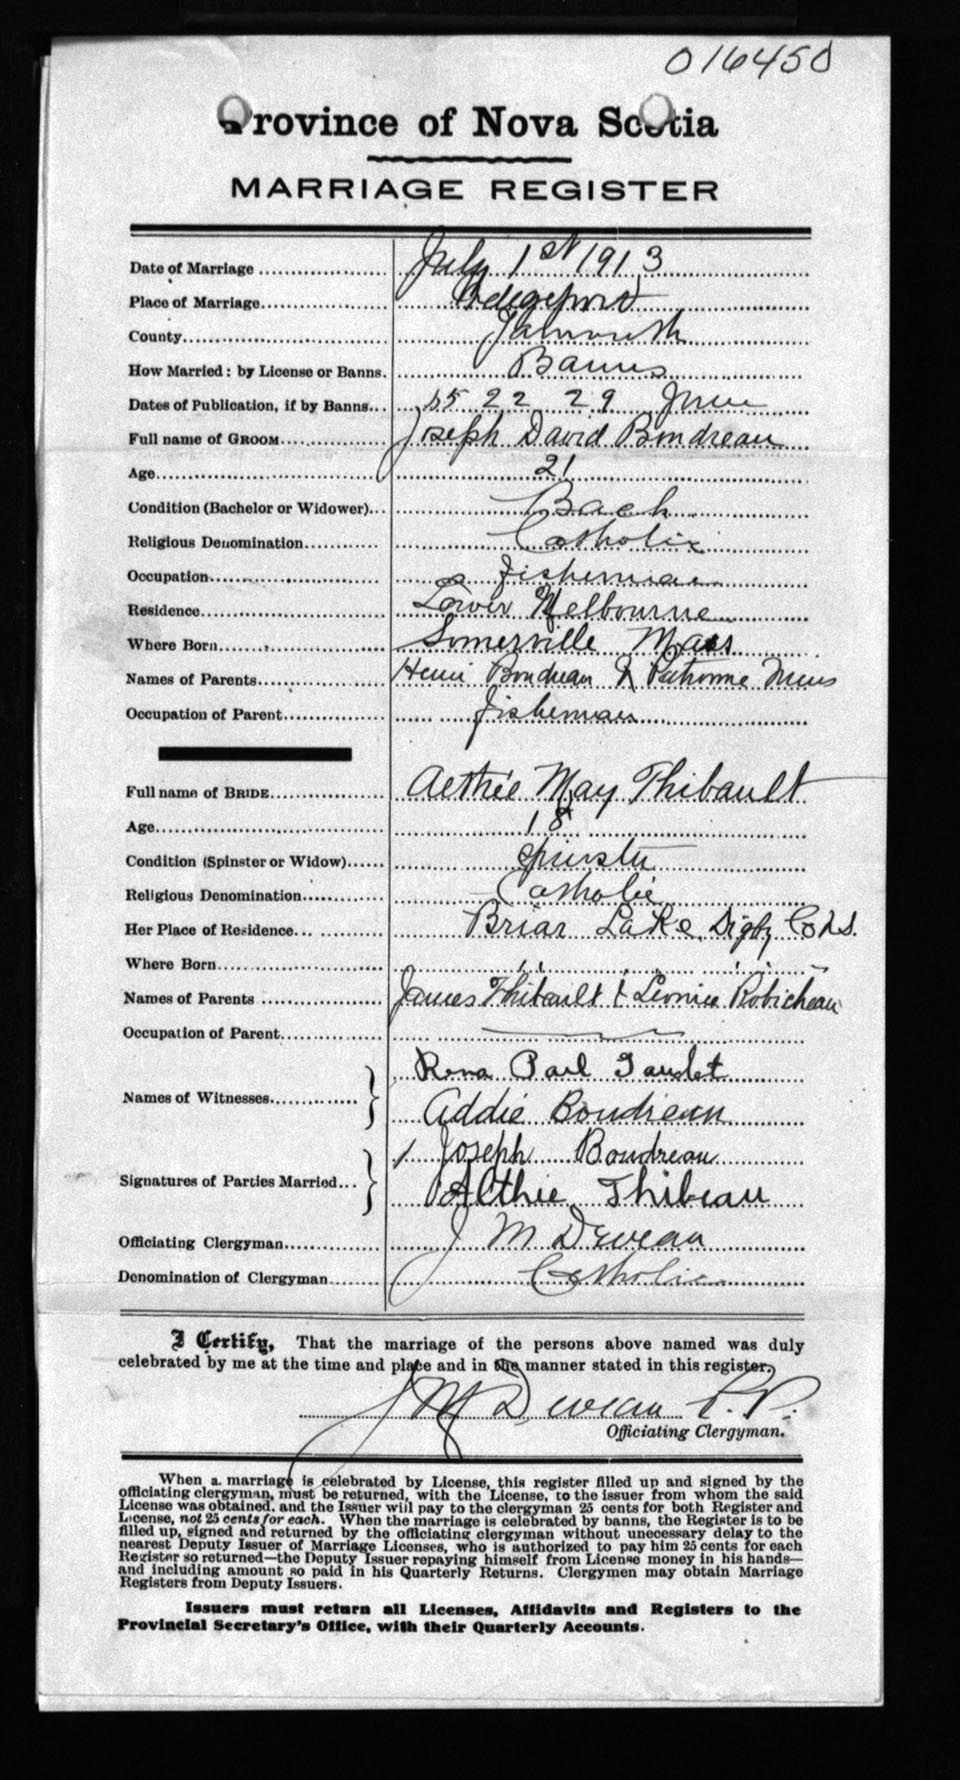 016450
Province of Nova Scotia
MARRIAGE REGISTER
Date of Marriage July 1st 1913
Place of Marriage
County Yarmouth
How Married: by License or Banns. Banns
Dates of Publication, if by Banns 15 22 29 June
Full name of GROOM Joseph David Boudreau
Age 21
Condition (Bachelor or Widower) Bach
Religious Denomination Catholic
Occupation fisherman
Residence Lower Melbourne
Where Born Somerville Mass
Names of Parents Henri Boudreau &
Occupation of Parent fisherman
Full name of BRIDE Aethée May Thibault
Age 18
Condition (Spinster or Widow) Spinster
Religious Denomination Catholic
Her Place of Residence Briar Lake, Digby Co N.S.
Where Born " "
Names of Parents James Thibault & Leonice Robicheau
Occupation of Parent
Names of Witnesses Rona Paul Gaudet
Addie Boudreau
Signatures of Parties Married Joseph Boudreau
Althie Thibeau
Officiating Clergyman J M Deveau
Denomination of Clergyman Catholic
I Certify, That the marriage of the persons above named was duly
celebrated by me at the time and place and in the manner stated in this register.
J M Deveau P.P.
Officiating Clergyman.
When a marriage is celebrated by License, this register filled up and signed by the
officiating clergyman, must be returned, with the License, to the issuer from whom the said
License was obtained, and the Issuer will pay to the clergyman 25 cents for both Register and
License, not 25 cents for each. When the marriage is celebrated by banns, the Register is to be
filled up, signed and returned by the officiating clergyman without unnecessary delay to the
nearest Deputy Issuer of Marriage Licenses, who is authorized to pay him 25 cents for each
Register so returned—the Deputy Issuer repaying himself from License money in his hands—
and including amount so paid in his Quarterly Returns. Clergymen may obtain Marriage
Registers from Deputy Issuers.
Issuers must return all Licenses, Affidavits and Registers to the
Provincial Secretary's Office, with their Quarterly Accounts.